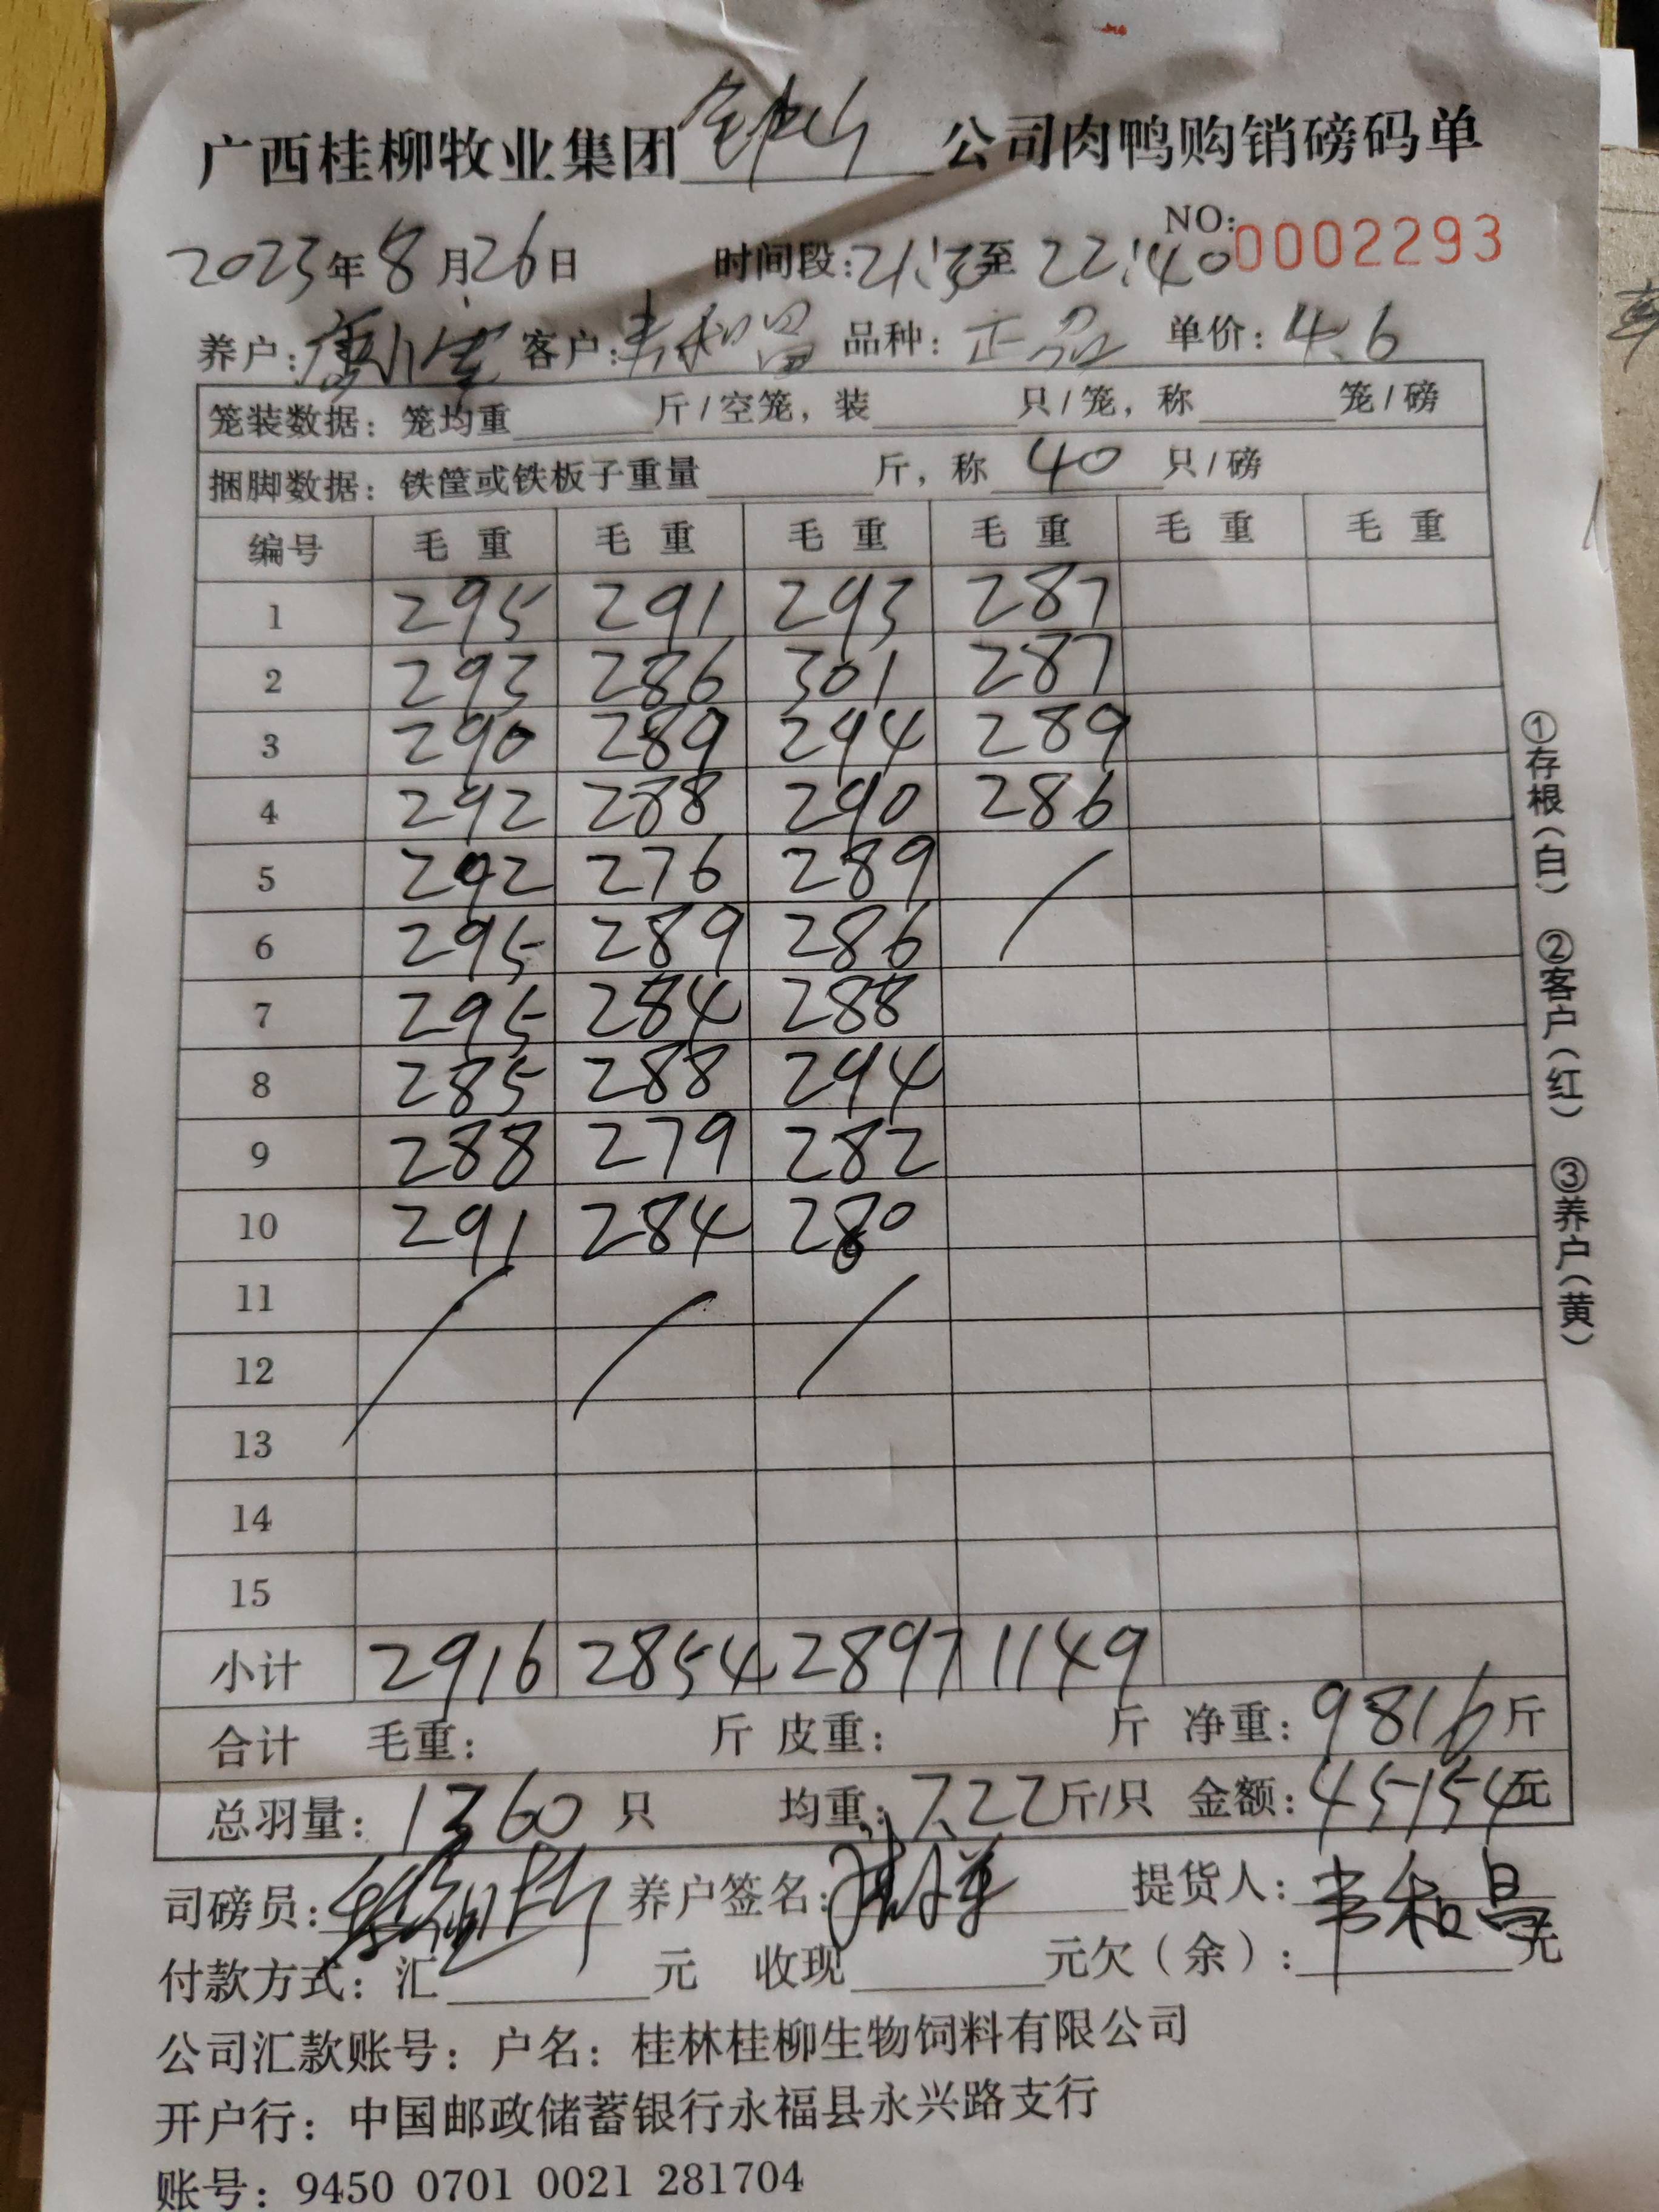 广西桂柳牧业集团 钟山 公司肉鸭购销磅码单
NO:0002293
2023年8月26日 时间段:21:13至22:40
养户: 客户:韦和昌 品种:正品 单价:4.6
笼装数据:笼均重 斤/空笼,装 只/笼,称 笼/磅
捆脚数据:铁筐或铁板子重量 斤,称 40 只/磅
编号 毛重 毛重 毛重 毛重 毛重 毛重
1 295 291 293 287
2 293 286 301 287
3 290 289 294 289
4 292 288 290 286
5 292 276 289
6 295 289 286
7 295 284 288
8 285 288 294
9 288 279 282
10 291 284 280
11
12
13
14
15
小计 2916 2854 2897 1149
合计 毛重: 斤 皮重: 斤 净重:9816斤
总羽量:1360只 均重:7.22斤/只 金额:45154元
司磅员: 养户签名: 提货人:韦和昌
付款方式:汇 元 收现 元欠(余): 元
公司汇款账号:户名:桂林桂柳生物饲料有限公司
开户行:中国邮政储蓄银行永福县永兴路支行
账号:9450 0701 0021 281704
①存根(白) ②客户(红) ③养户(黄)